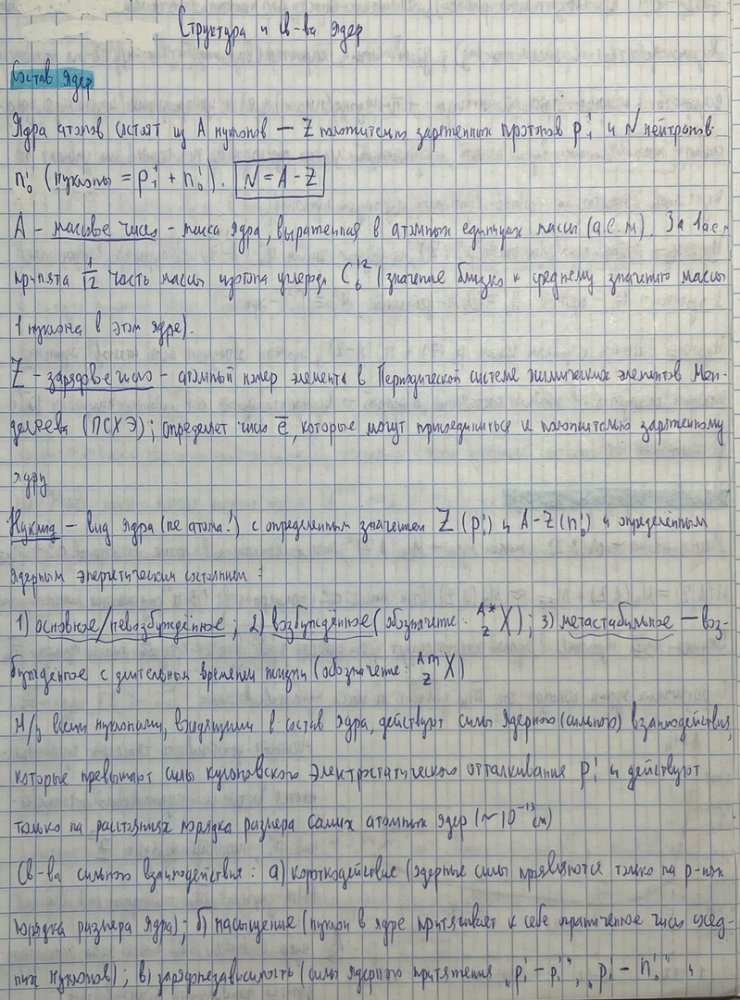 Структура и св-ва ядер
Состав ядер
Ядра атомов состоят из А нуклонов — Z положительно заряженных протонов p₁¹ и N нейтронов
n₀¹ (нуклоны = p₁¹ + n₀¹). N = A - Z
А - массовое число - масса ядра, выраженная в атомных единицах массы (а.е.м). За 1 а.е.м
принята 1/12 часть массы изотопа углерода C₆¹² (значение близко к среднему значению массы
1 нуклона в этом ядре).
Z - зарядовое число - атомный номер элемента в Периодической системе химических элементов Мен-
делеева (ПСХЭ); определяет число e̅, которые могут присоединиться к положительно заряженному
ядру
Нуклид — вид ядра (не атома!) с определенным значением Z (p₁¹) и A-Z (n₀¹) и определённым
ядерным энергетическим состоянием:
1) основное/невозбуждённое; 2) возбуждённое (обозначение: ᴬ*_Z X); 3) метастабильное — воз-
бужденное с длительным временем жизни (обозначение: ᴬᵐ_Z X)
М/у всеми нуклонами, входящими в состав ядра, действуют силы ядерного (сильного) взаимодействия,
которые превышают силы кулоновского электростатического отталкивания p₁¹ и действуют
только на расстояниях порядка размера самих атомных ядер (~10⁻¹³ см)
Св-ва сильного взаимодействия: а) короткодействие (ядерные силы проявляются только на р-нии
порядка размера ядра); б) насыщение (нуклон в ядре притягивает к себе ограниченное число сосед-
них нуклонов); в) зарядонезависимость (силы ядерного притяжения „p₁¹ - p₁¹", „p₁¹ - n₀¹" и